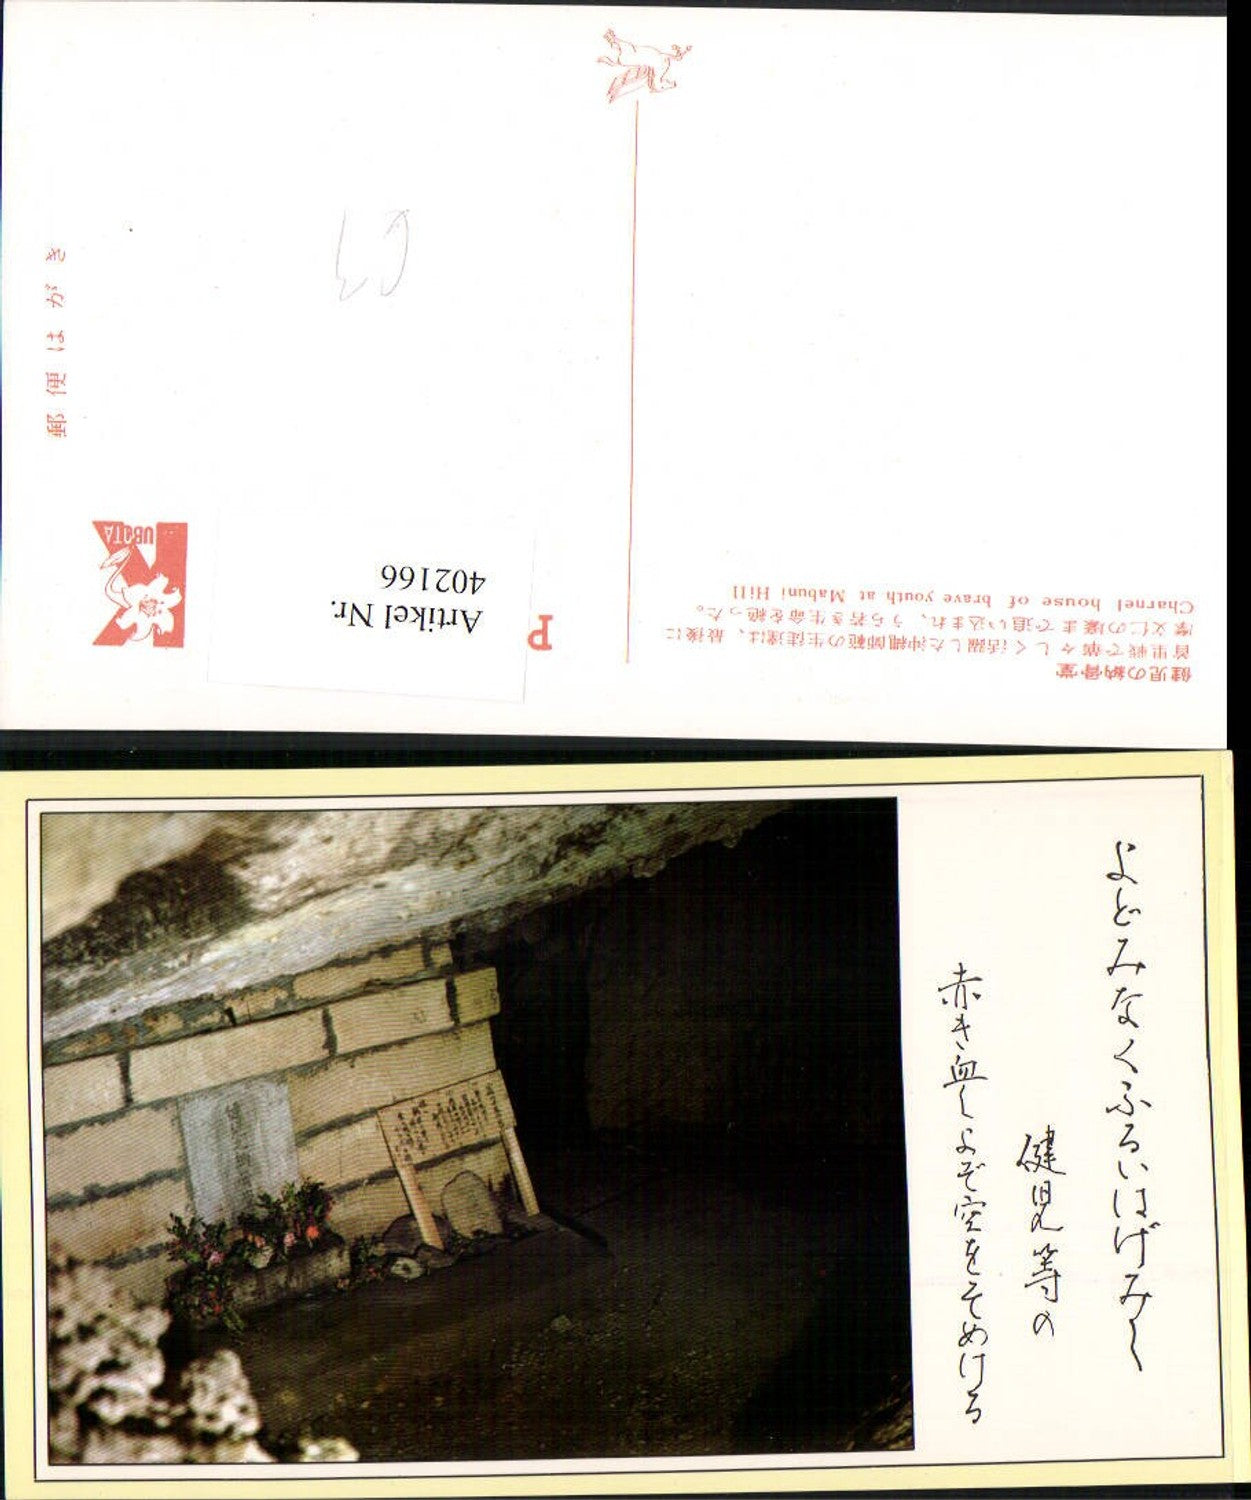 郵便はがき
UBOTA
Artikel Nr.
402166
P
健児の納骨堂
首里戦で華々しく活躍した沖縄師範の生徒達は、最後に
摩文仁の壕まで追い込まれ、うら若き生命を絶った。
Charnel house of brave youth at Mabuni Hill
よどみなくふるいはげみし
健児等の
赤き血しよぞ空をそめける